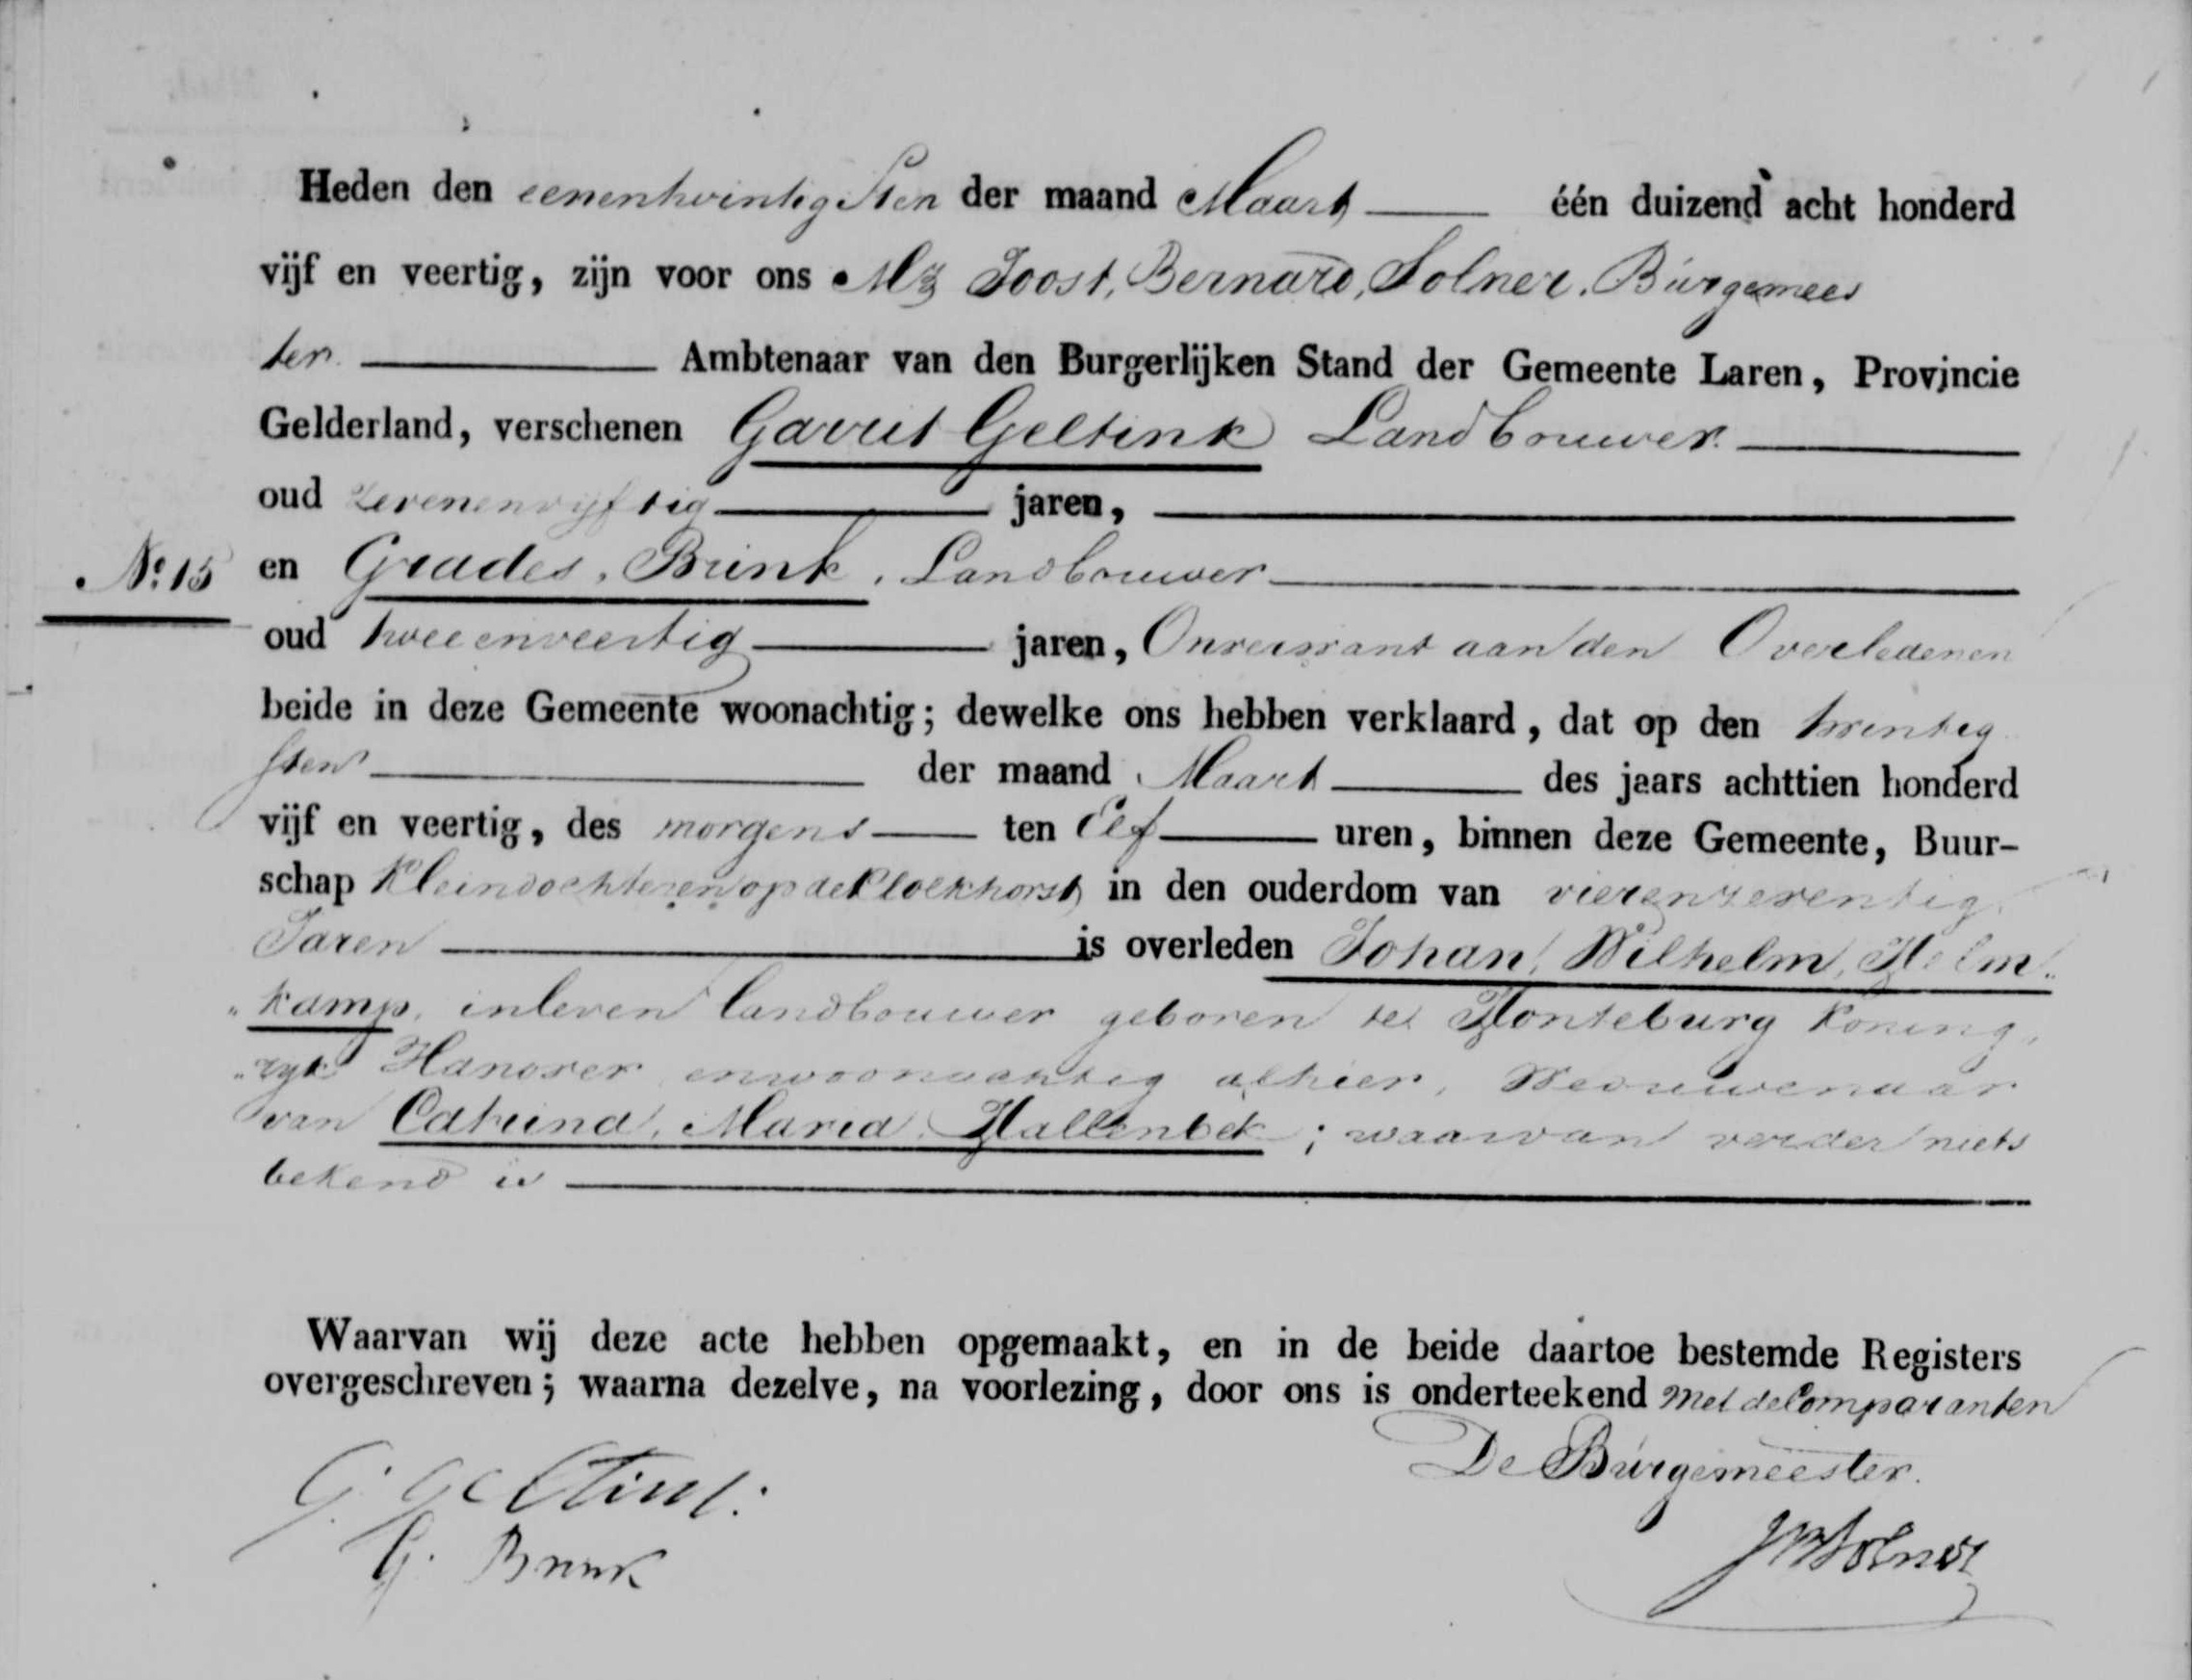 Heden den eenentwintigsten der maand Maart één duizend acht honderd
vijf en veertig, zijn voor ons Mr Joost, Bernard, Solner. Burgemees
ter. Ambtenaar van den Burgerlijken Stand der Gemeente Laren, Provincie
Gelderland, verschenen Garrit Geltink Landbouwer.
oud zevenenvijftig jaren,
No: 15 en Grades, Brink, Landbouwer
oud tweeenveertig jaren, Onverwant aan den Overledenen
beide in deze Gemeente woonachtig; dewelke ons hebben verklaard, dat op den twintig
sten der maand Maart des jaars achttien honderd
vijf en veertig, des morgens ten Elf uren, binnen deze Gemeente, Buur-
schap Kleindochteren op de Ploekhorst in den ouderdom van vierenzeventig
Jaren is overleden Johan, Wilhelm, Helm„
„kamp, inleven landbouwer geboren te Honteburg Koning„
„ryk Hanover en woonachtig alhier, Weduwenaar
van Catrina, Maria, Hallenbek; waarvan verder niets
bekend is
Waarvan wij deze acte hebben opgemaakt, en in de beide daartoe bestemde Registers
overgeschreven; waarna dezelve, na voorlezing, door ons is onderteekend met de Comparanten
De Burgemeester.
G. Geltink:
G. Brink
JB Solner